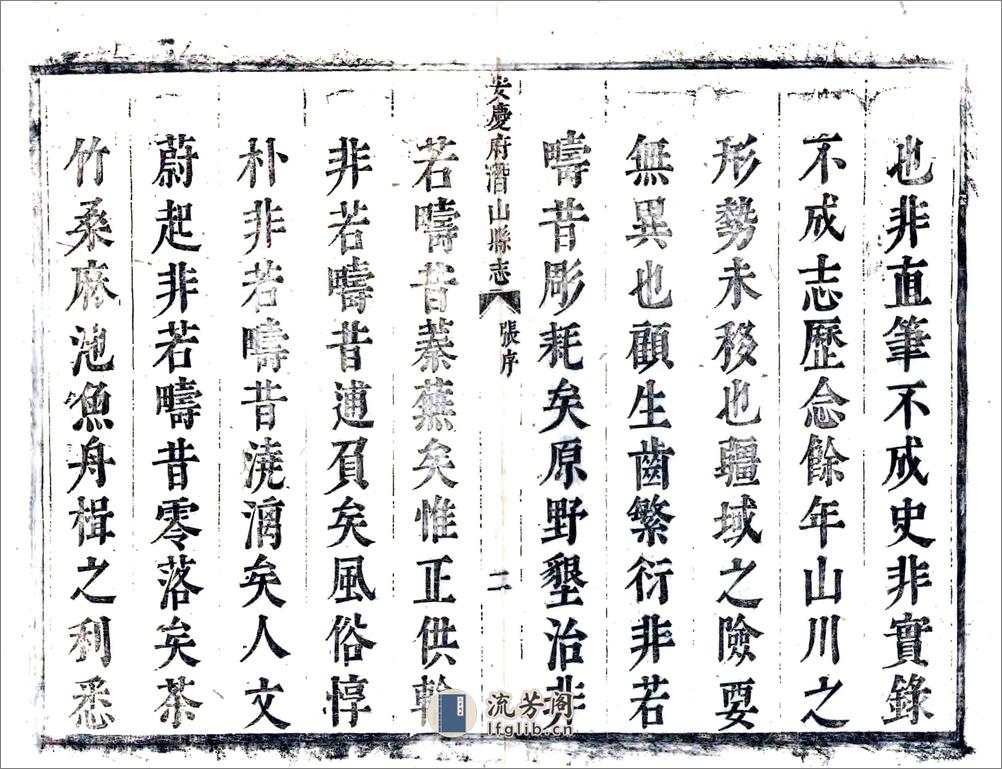 也非直筆不成史非實錄
不成志歷念餘年山川之
形勢未移也疆域之險要
無異也顧生齒繁衍非若
疇昔彫耗矣原野墾治非
安慶府潛山縣志 張序 二
若疇昔蓁蕪矣惟正供輸
非若疇昔逋負矣風俗惇
朴非若疇昔澆漓矣人文
蔚起非若疇昔零落矣茶
竹桑麻池魚舟楫之利悉
流芳阁
lfglib.cn